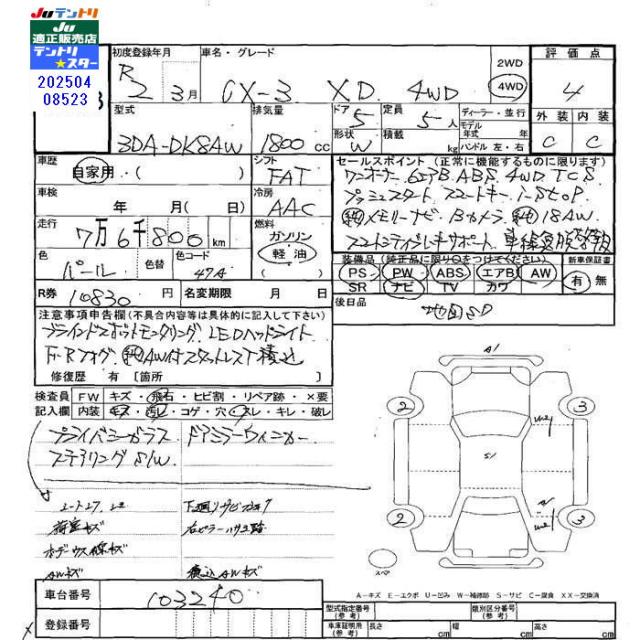 Juテントリ
Ju
適正販売店
テントリ
★スター
202504
08523
初度登録年月 車名・グレード 2WD 4WD 評価点
R2 3月 CX-3 XD 4WD 4
型式 排気量 ドア 定員 ディーラー・並行 外装 内装
3DA-DK8AW 1800cc 5 5人 モデル年式 年 C C
形状 W 積載 kg ハンドル 左・右
車歴 自家用・( ) シフト FAT
セールスポイント(正常に機能するものに限ります)
ワンオーナー 6エアB ABS 4WD TCS
車検 年 月(日) 冷房 AAC
プッシュスタート スマートキー i-STOP
メモリーナビ Bカメラ 18AW
走行 7万6千800km 燃料 ガソリン 軽油
スマートシティブレーキサポート 車線逸脱警報
色 パール 色替 色コード 47A
装備品(純正品に限り○をつけてください) 新車保証書
PS・PW・ABS・エアB・AW
SR ナビ TV カワ 有・無
R券 10830円 名変期限 月 日 後日品 地図SD
注意事項申告欄(不具合内容等は具体的に記入して下さい)
ブラインドスポットモニタリング LEDヘッドライト
F・Rフォグ AW付スタッドレスT積込
修復歴 有[箇所 ]
検査員記入欄 FW キズ・飛石・ヒビ割・リペア跡・×要
内装 キズ・汚レ・コゲ・穴・スレ・キレ・破レ
プライバシーガラス ドアミラーウィンカー
ステアリングS/W
下廻りサビ
荷室キズ
AWキズ 積込AWキズ
A1
2 3
S1
2 3
スペア
A－キズ E－エクボ U－凹み W－補修跡 S－サビ C－腐食 XX－交換済
車台番号 103240
登録番号
型式指定番号(参考) 類別区分番号(参考)
車庫証明用(参考) 長さ cm 幅 cm 高さ cm